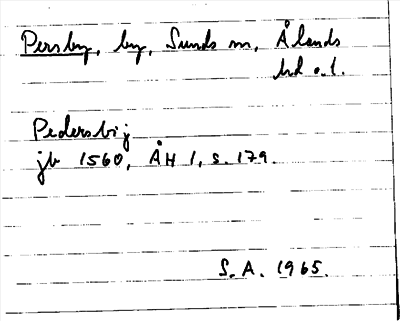 Persby, by, Sunds sn, Ålands
hd o. l.
Pedersbij
jb 1560, ÅH 1, s. 179.
S. A. 1965.